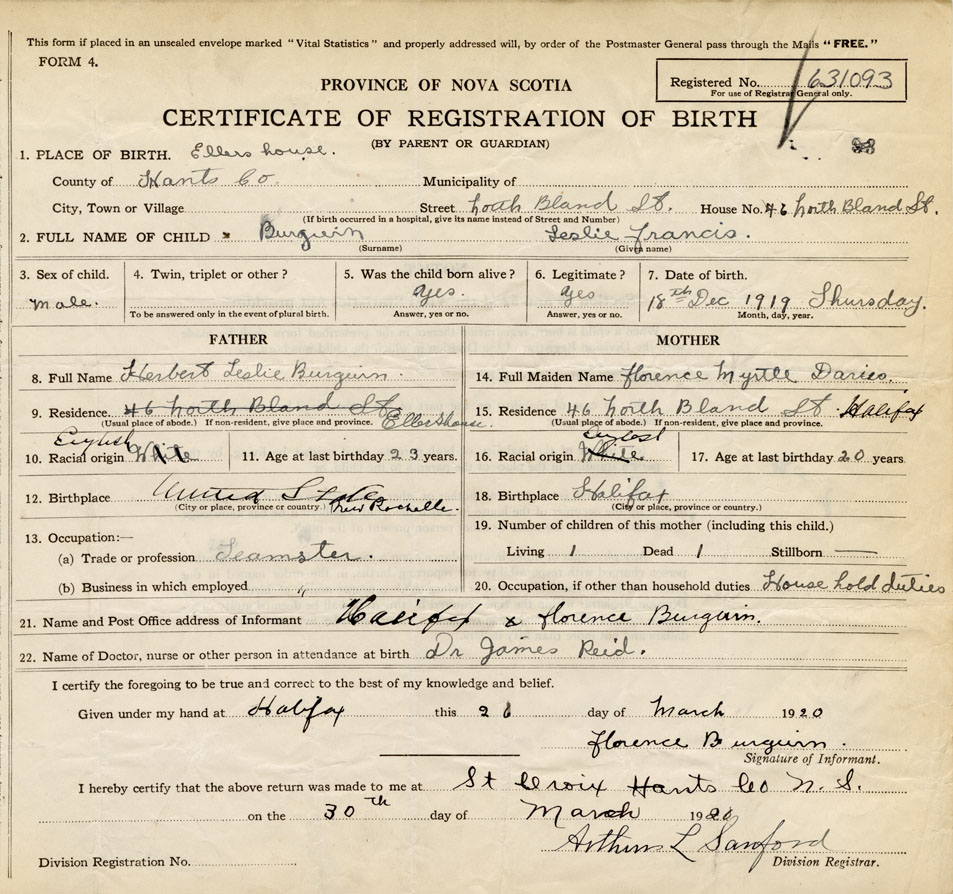 This form if placed in an unsealed envelope marked "Vital Statistics" and properly addressed will, by order of the Postmaster General pass through the Mails "FREE."
FORM 4.
Registered No. 631093
For use of Registrar General only.
PROVINCE OF NOVA SCOTIA
CERTIFICATE OF REGISTRATION OF BIRTH
(BY PARENT OR GUARDIAN)
1. PLACE OF BIRTH. Ellershouse.
County of Hants Co. Municipality of
City, Town or Village Street North Bland St. House No. 46 North Bland St.
(If birth occurred in a hospital, give its name instead of Street and Number)
2. FULL NAME OF CHILD Burguin Leslie Francis.
(Surname) (Given name)
3. Sex of child. 4. Twin, triplet or other? 5. Was the child born alive? 6. Legitimate? 7. Date of birth.
Male. yes. yes 18th Dec 1919 Thursday.
To be answered only in the event of plural birth. Answer, yes or no. Answer, yes or no. Month, day, year.
FATHER MOTHER
8. Full Name Herbert Leslie Burguin. 14. Full Maiden Name Florence Myrtle Davies.
9. Residence. 46 North Bland St Ellershouse. 15. Residence 46 North Bland St Halifax
(Usual place of abode.) If non-resident, give place and province. (Usual place of abode.) If non-resident, give place and province.
English
10. Racial origin White 11. Age at last birthday 23 years. 16. Racial origin White 17. Age at last birthday 20 years
12. Birthplace United State New Rochelle. 18. Birthplace Halifax
(City or place, province or country.) (City or place, province or country.)
13. Occupation:— 19. Number of children of this mother (including this child.)
(a) Trade or profession Teamster. Living 1 Dead 1 Stillborn —
(b) Business in which employed " 20. Occupation, if other than household duties House hold duties
21. Name and Post Office address of Informant Halifax x Florence Burguin.
22. Name of Doctor, nurse or other person in attendance at birth Dr James Reid.
I certify the foregoing to be true and correct to the best of my knowledge and belief.
Given under my hand at Halifax this 26 day of March 1920
Florence Burguin.
Signature of Informant.
I hereby certify that the above return was made to me at St Croix Hants Co N. S.
on the 30th day of March 1920
Arthur L Sanford
Division Registration No. Division Registrar.